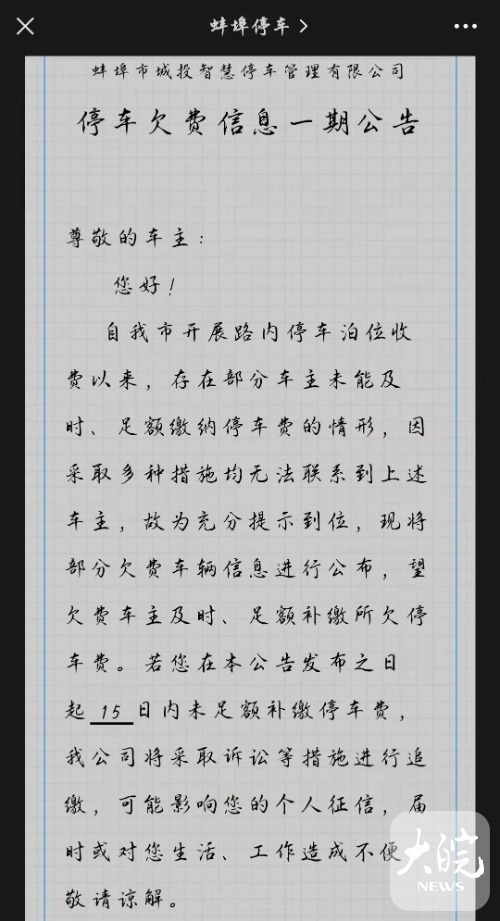 蚌埠停车
蚌埠市城投智慧停车管理有限公司
停车欠费信息一期公告
尊敬的车主：
您好！
自我市开展路内停车泊位收
费以来，存在部分车主未能及
时、足额缴纳停车费的情形，因
采取多种措施均无法联系到上述
车主，故为充分提示到位，现将
部分欠费车辆信息进行公布，望
欠费车主及时、足额补缴所欠停
车费。若您在本公告发布之日
起 15 日内未足额补缴停车费，
我公司将采取诉讼等措施进行追
缴，可能影响您的个人征信，届
时或对您生活、工作造成不便
敬请谅解。
大皖
NEWS